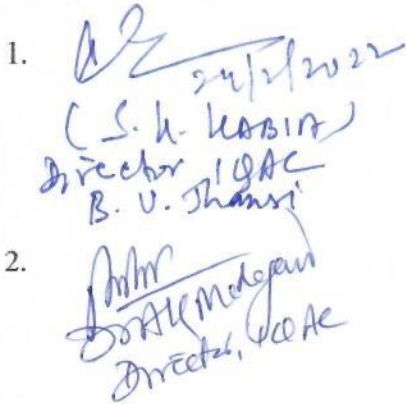 1.
24/2/2022
(S. K. KABIA)
Director IQAC
B. U. Jhansi
2.
Director, IQAC